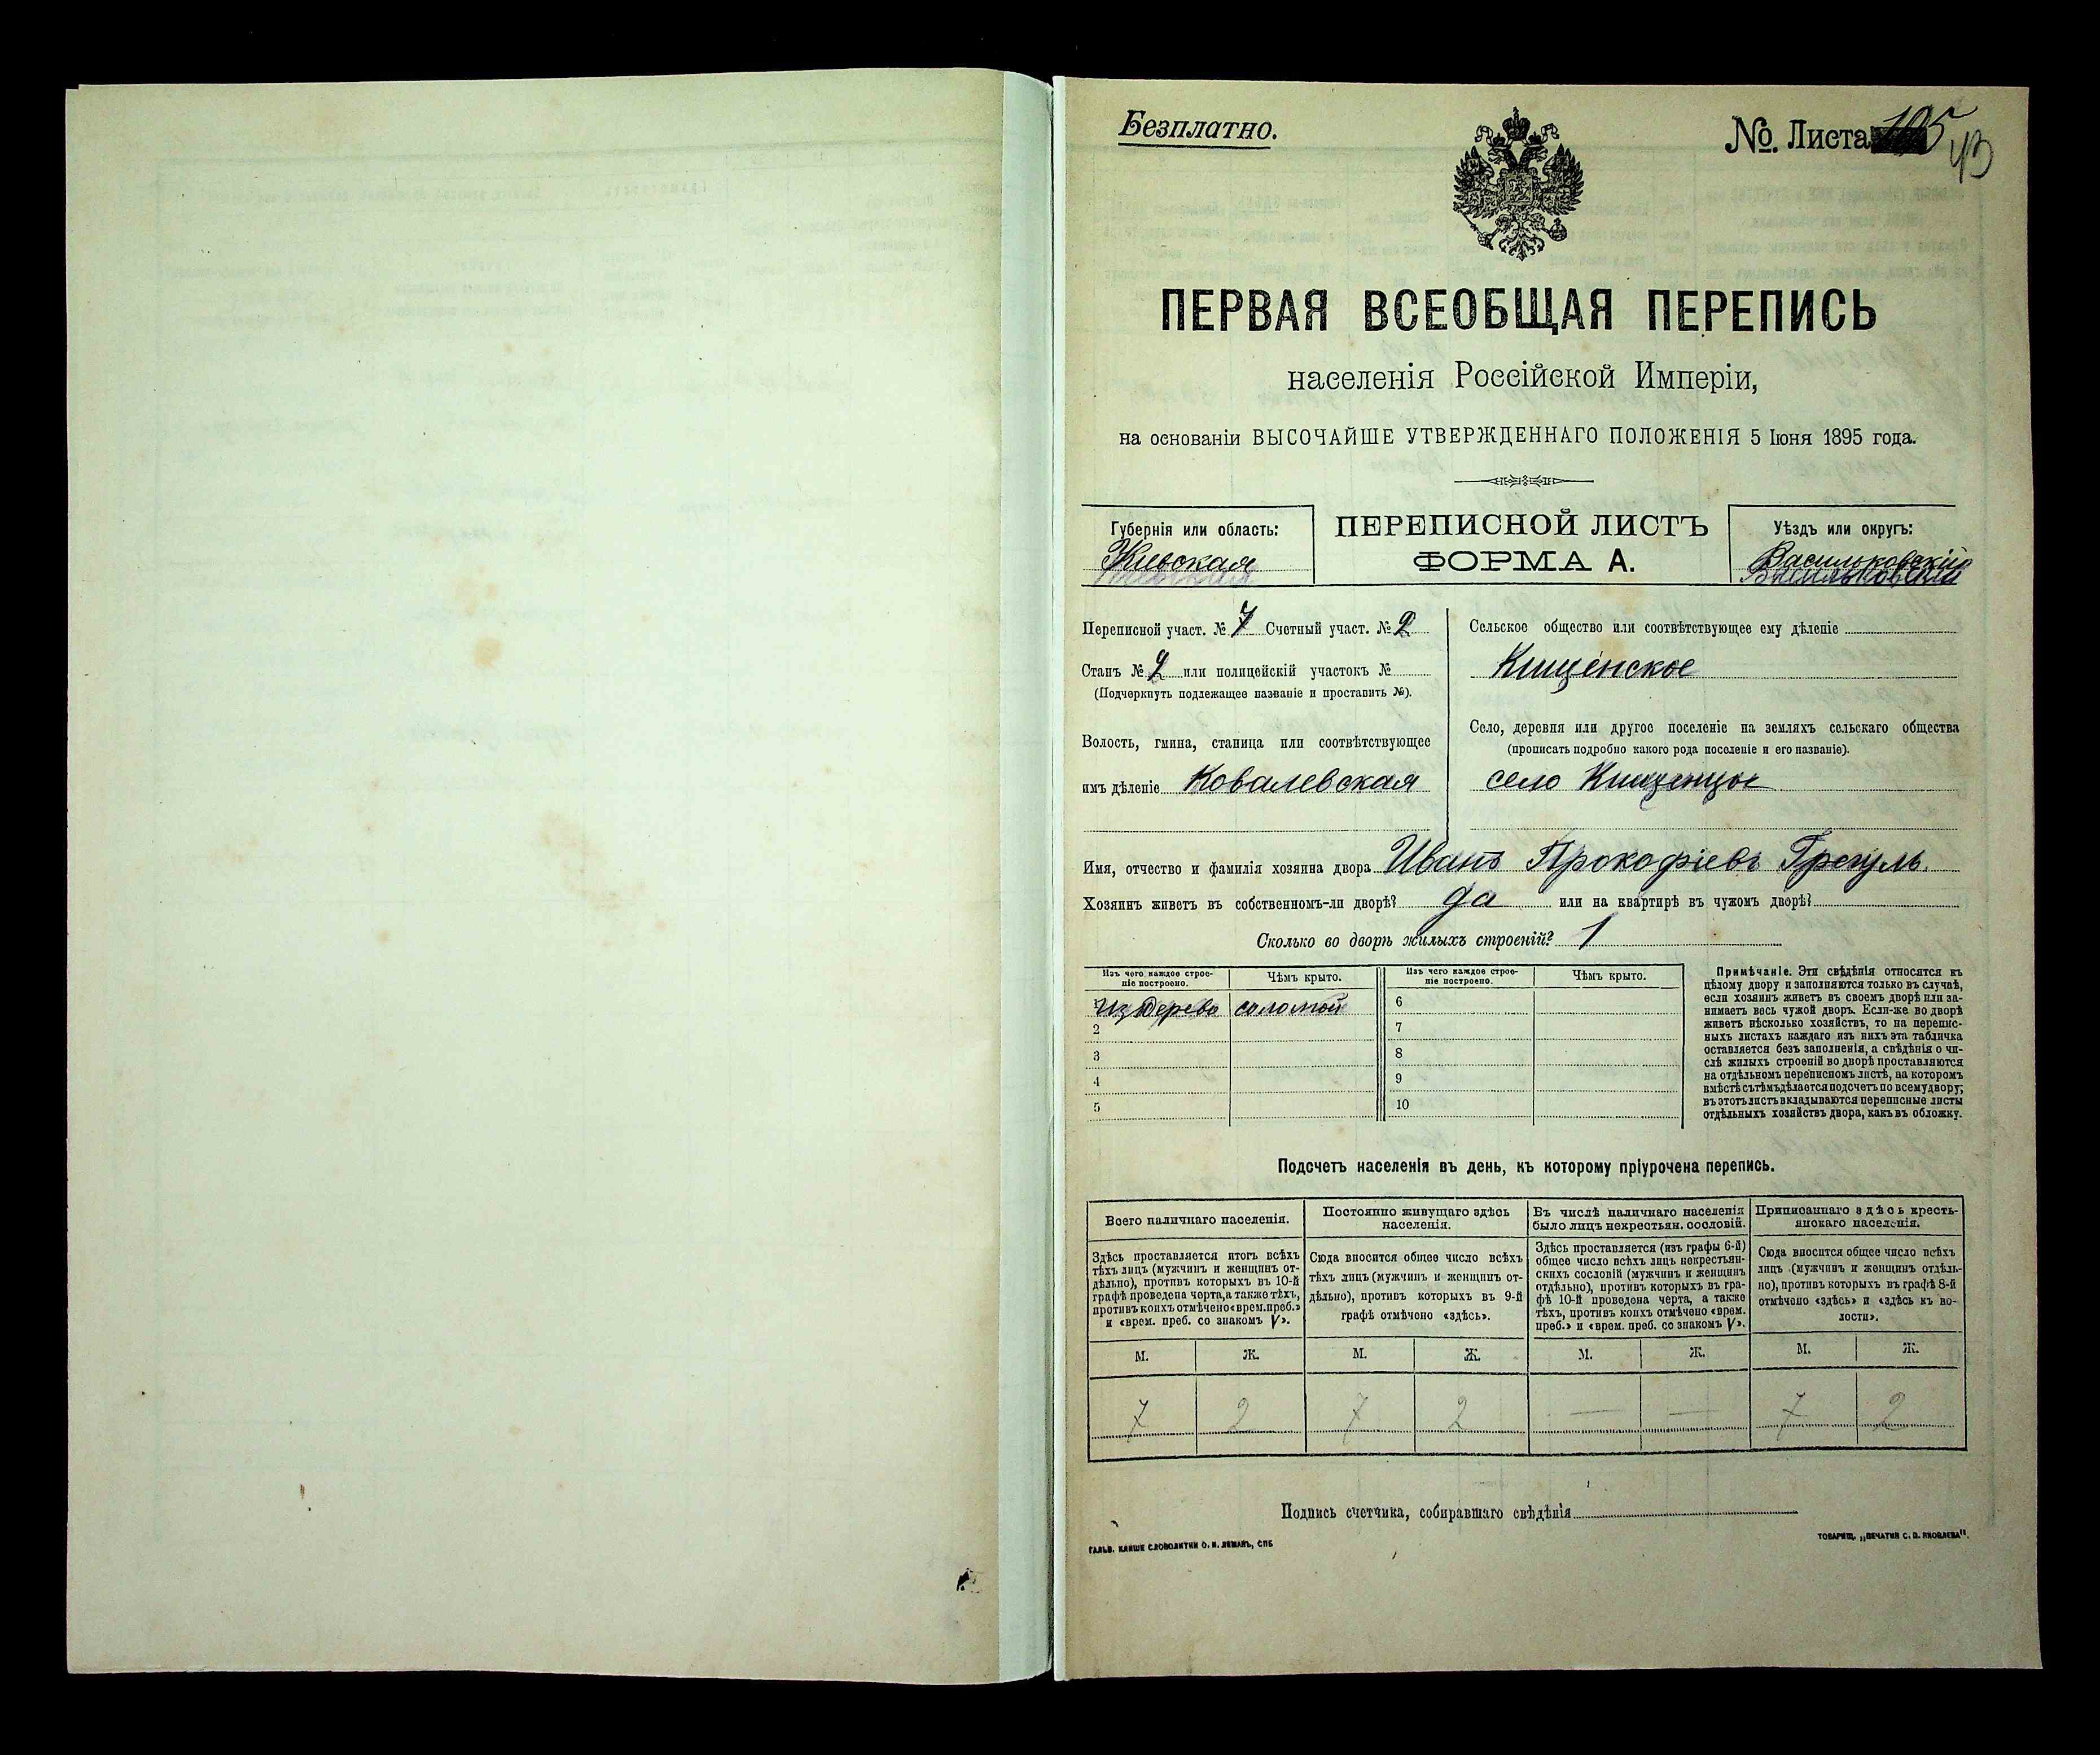 Безплатно.
№ Листа 195
43
ПЕРВАЯ ВСЕОБЩАЯ ПЕРЕПИСЬ
населенія Россійской Имперіи,
на основаніи ВЫСОЧАЙШЕ УТВЕРЖДЕННАГО ПОЛОЖЕНІЯ 5 Іюня 1895 года.
Губернія или область:
Кіевская
ПЕРЕПИСНОЙ ЛИСТЪ
ФОРМА А.
Уѣздъ или округъ:
Васильковскій
Переписной участ. № 7 Счетный участ. № 2
Станъ № 2 или полицейскій участокъ №
(Подчеркнуть подлежащее названіе и проставить №).
Волость, гмина, станица или соотвѣтствующее
имъ дѣленіе Ковалевская
Сельское общество или соотвѣтствующее ему дѣленіе
Кищенское
Село, деревня или другое поселеніе на земляхъ сельскаго общества
(прописать подробно какого рода поселеніе и его названіе).
село Кищенцы
Имя, отчество и фамилія хозяина двора Иванъ Прокофіевъ Грегуль.
Хозяинъ живетъ въ собственномъ-ли дворѣ? да или на квартирѣ въ чужомъ дворѣ?
Сколько во дворѣ жилыхъ строеній? 1
Изъ чего каждое строе-
ніе построено.
Чѣмъ крыто.
Изъ чего каждое строе-
ніе построено.
Чѣмъ крыто.
1 Из дерева соломой 6
2 7
3 8
4 9
5 10
Примѣчаніе. Эти свѣдѣнія относятся къ
цѣлому двору и заполняются только въ случаѣ,
если хозяинъ живетъ въ своемъ дворѣ или за-
нимаетъ весь чужой дворъ. Если-же во дворѣ
живетъ нѣсколько хозяйствъ, то на перепис-
ныхъ листахъ каждаго изъ нихъ эта табличка
оставляется безъ заполненія, а свѣдѣнія о чи-
слѣ жилыхъ строеній во дворѣ проставляются
на отдѣльномъ переписномъ листѣ, на которомъ
вмѣстѣ съ тѣмъ дѣлается подсчетъ по всему двору;
въ этотъ листъ вкладываются переписные листы
отдѣльныхъ хозяйствъ двора, какъ въ обложку.
Подсчетъ населенія въ день, къ которому пріурочена перепись.
Всего наличнаго населенія.
Постоянно живущаго здѣсь
населенія.
Въ числѣ наличнаго населенія
было лицъ некрестьян. сословій.
Приписаннаго здѣсь кресть-
янскаго населенія.
Здѣсь проставляется итогъ всѣхъ
тѣхъ лицъ (мужчинъ и женщинъ от-
дѣльно), противъ которыхъ въ 10-й
графѣ проведена черта, а также тѣхъ,
противъ коихъ отмѣчено «врем. преб.»
и «врем. преб. со знакомъ V».
Сюда вносится общее число всѣхъ
тѣхъ лицъ (мужчинъ и женщинъ от-
дѣльно), противъ которыхъ въ 9-й
графѣ отмѣчено «здѣсь».
Здѣсь проставляется (изъ графы 6-й)
общее число всѣхъ лицъ некрестьян-
скихъ сословій (мужчинъ и женщинъ
отдѣльно), противъ которыхъ въ гра-
фѣ 10-й проведена черта, а также
тѣхъ, противъ коихъ отмѣчено «врем.
преб.» и «врем. преб. со знакомъ V».
Сюда вносится общее число всѣхъ
лицъ (мужчинъ и женщинъ отдѣль-
но), противъ которыхъ въ графѣ 8-й
отмѣчено «здѣсь» и «здѣсь къ во-
лости».
М. Ж. М. Ж. М. Ж. М. Ж.
7 2 7 2 — — 7 2
Подпись счетчика, собиравшаго свѣдѣнія
ГАЛЬВ. КЛИШЕ СЛОВОЛИТНИ О. И. ЛЕМАНЪ, СПБ
ТОВАРИЩ. „ПЕЧАТНЯ С. П. ЯКОВЛЕВА".